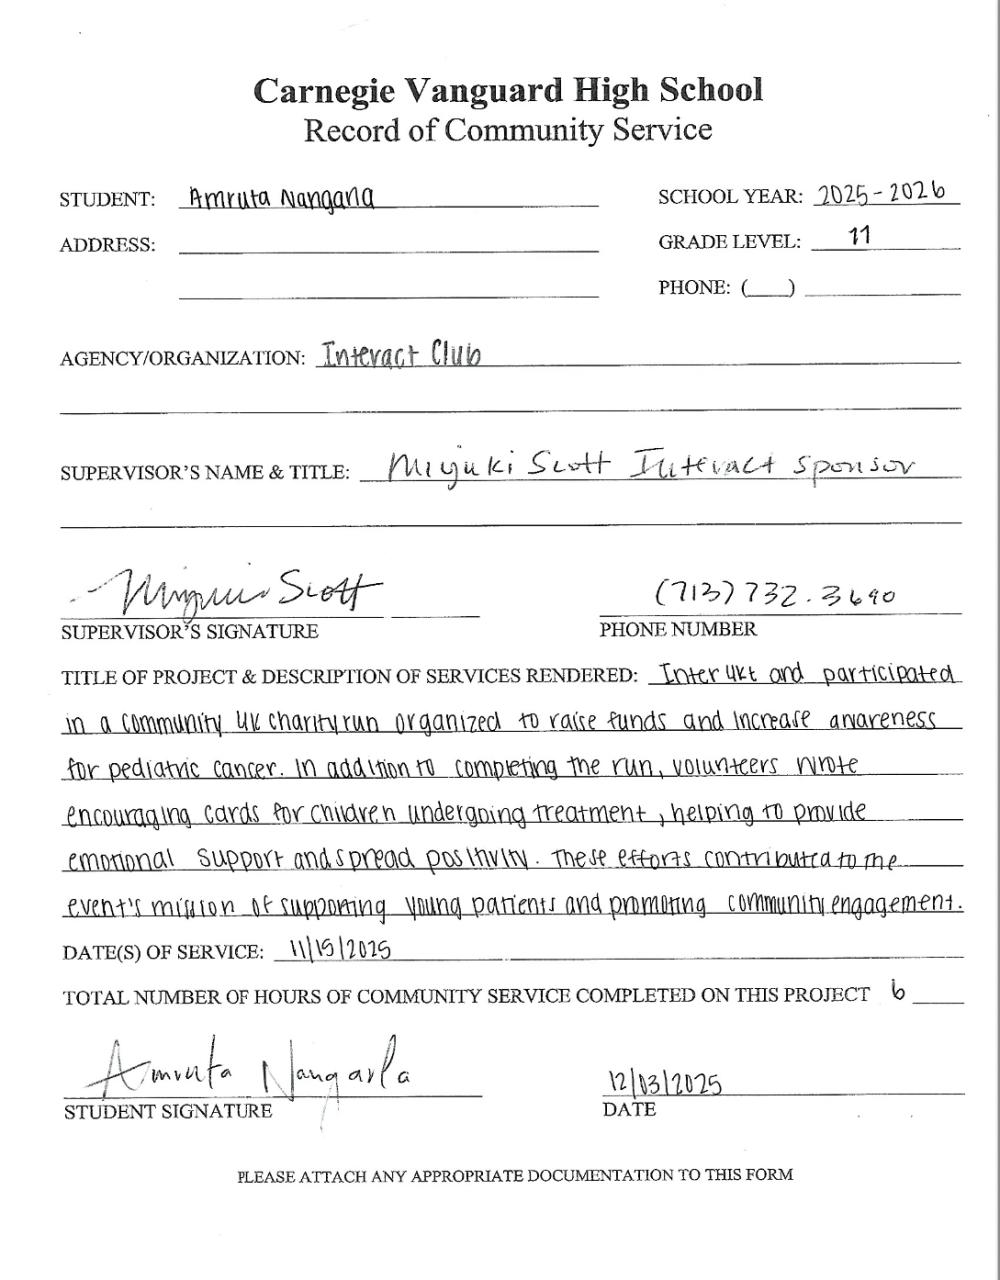 Carnegie Vanguard High School
Record of Community Service
STUDENT: Amruta Nangana SCHOOL YEAR: 2025-2026
ADDRESS: GRADE LEVEL: 11
PHONE: (___)
AGENCY/ORGANIZATION: Interact Club
SUPERVISOR'S NAME & TITLE: Miyuki Scott Interact sponsor
Miyuki Scott (713) 732.3690
SUPERVISOR'S SIGNATURE PHONE NUMBER
TITLE OF PROJECT & DESCRIPTION OF SERVICES RENDERED: Inter 4kt and participated
in a community 4k charity run organized to raise funds and increase awareness
for pediatric cancer. In addition to completing the run, volunteers wrote
encouraging cards for children undergoing treatment, helping to provide
emotional support and spread positivity. These efforts contributed to the
event's mission of supporting young patients and promoting community engagement.
DATE(S) OF SERVICE: 11/15/2025
TOTAL NUMBER OF HOURS OF COMMUNITY SERVICE COMPLETED ON THIS PROJECT 6
Amruta 12/03/2025
STUDENT SIGNATURE DATE
PLEASE ATTACH ANY APPROPRIATE DOCUMENTATION TO THIS FORM